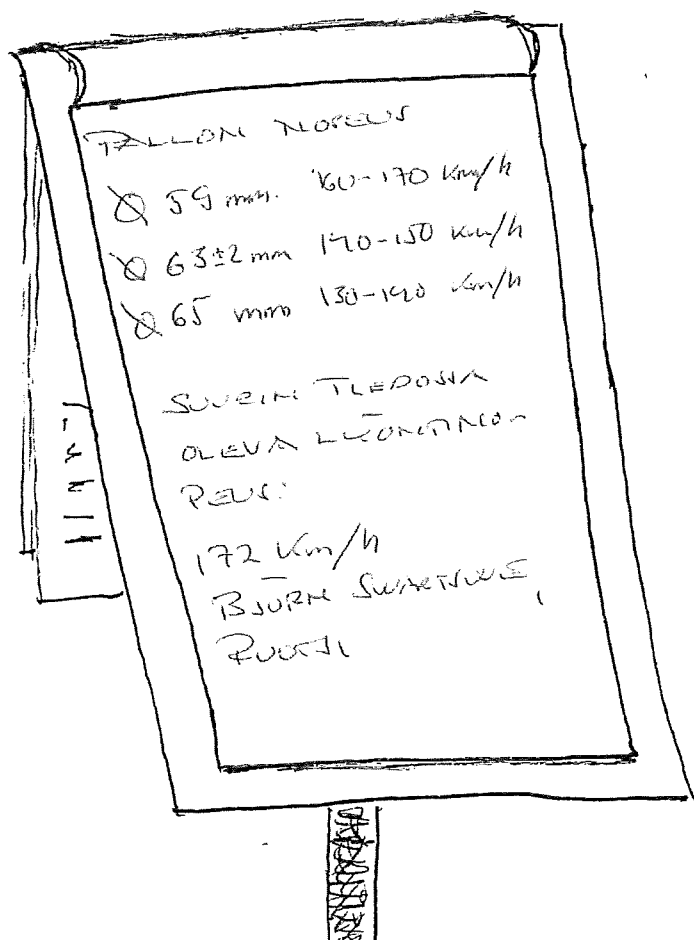 PALLON NOPEUS
Ø 59 mm. 160-170 Km/h
Ø 63±2 mm 140-150 Km/h
Ø 65 mm 130-140 Km/h
SUURIN TIEDOSSA
OLEVA LYÖNTINO-
PEUS:
172 Km/h
BJÖRN
RUOTSI